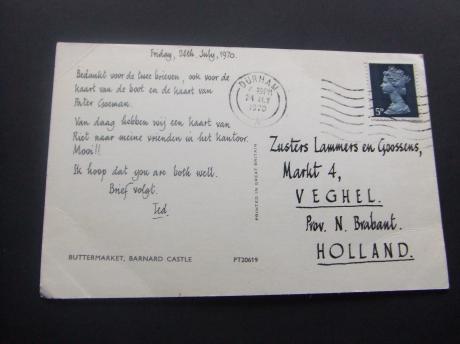 Friday, 24th July, 1970.
Bedankt voor de twee brieven, ook voor de
kaart van de boot en de kaart van
Pater Goeman.
Van daag hebben wij een kaart van
Riet naar meine vrienden in het kantoor.
Mooi!!
Ik hoop dat you are both well.
Brief volgt.
Ted.
BUTTERMARKET, BARNARD CASTLE
PT20619
PRINTED IN GREAT BRITAIN
DURHAM
24 JLY
1970
5P
Zusters Lammers en Goossens,
Markt 4,
VEGHEL.
Prov. N. Brabant.
HOLLAND.